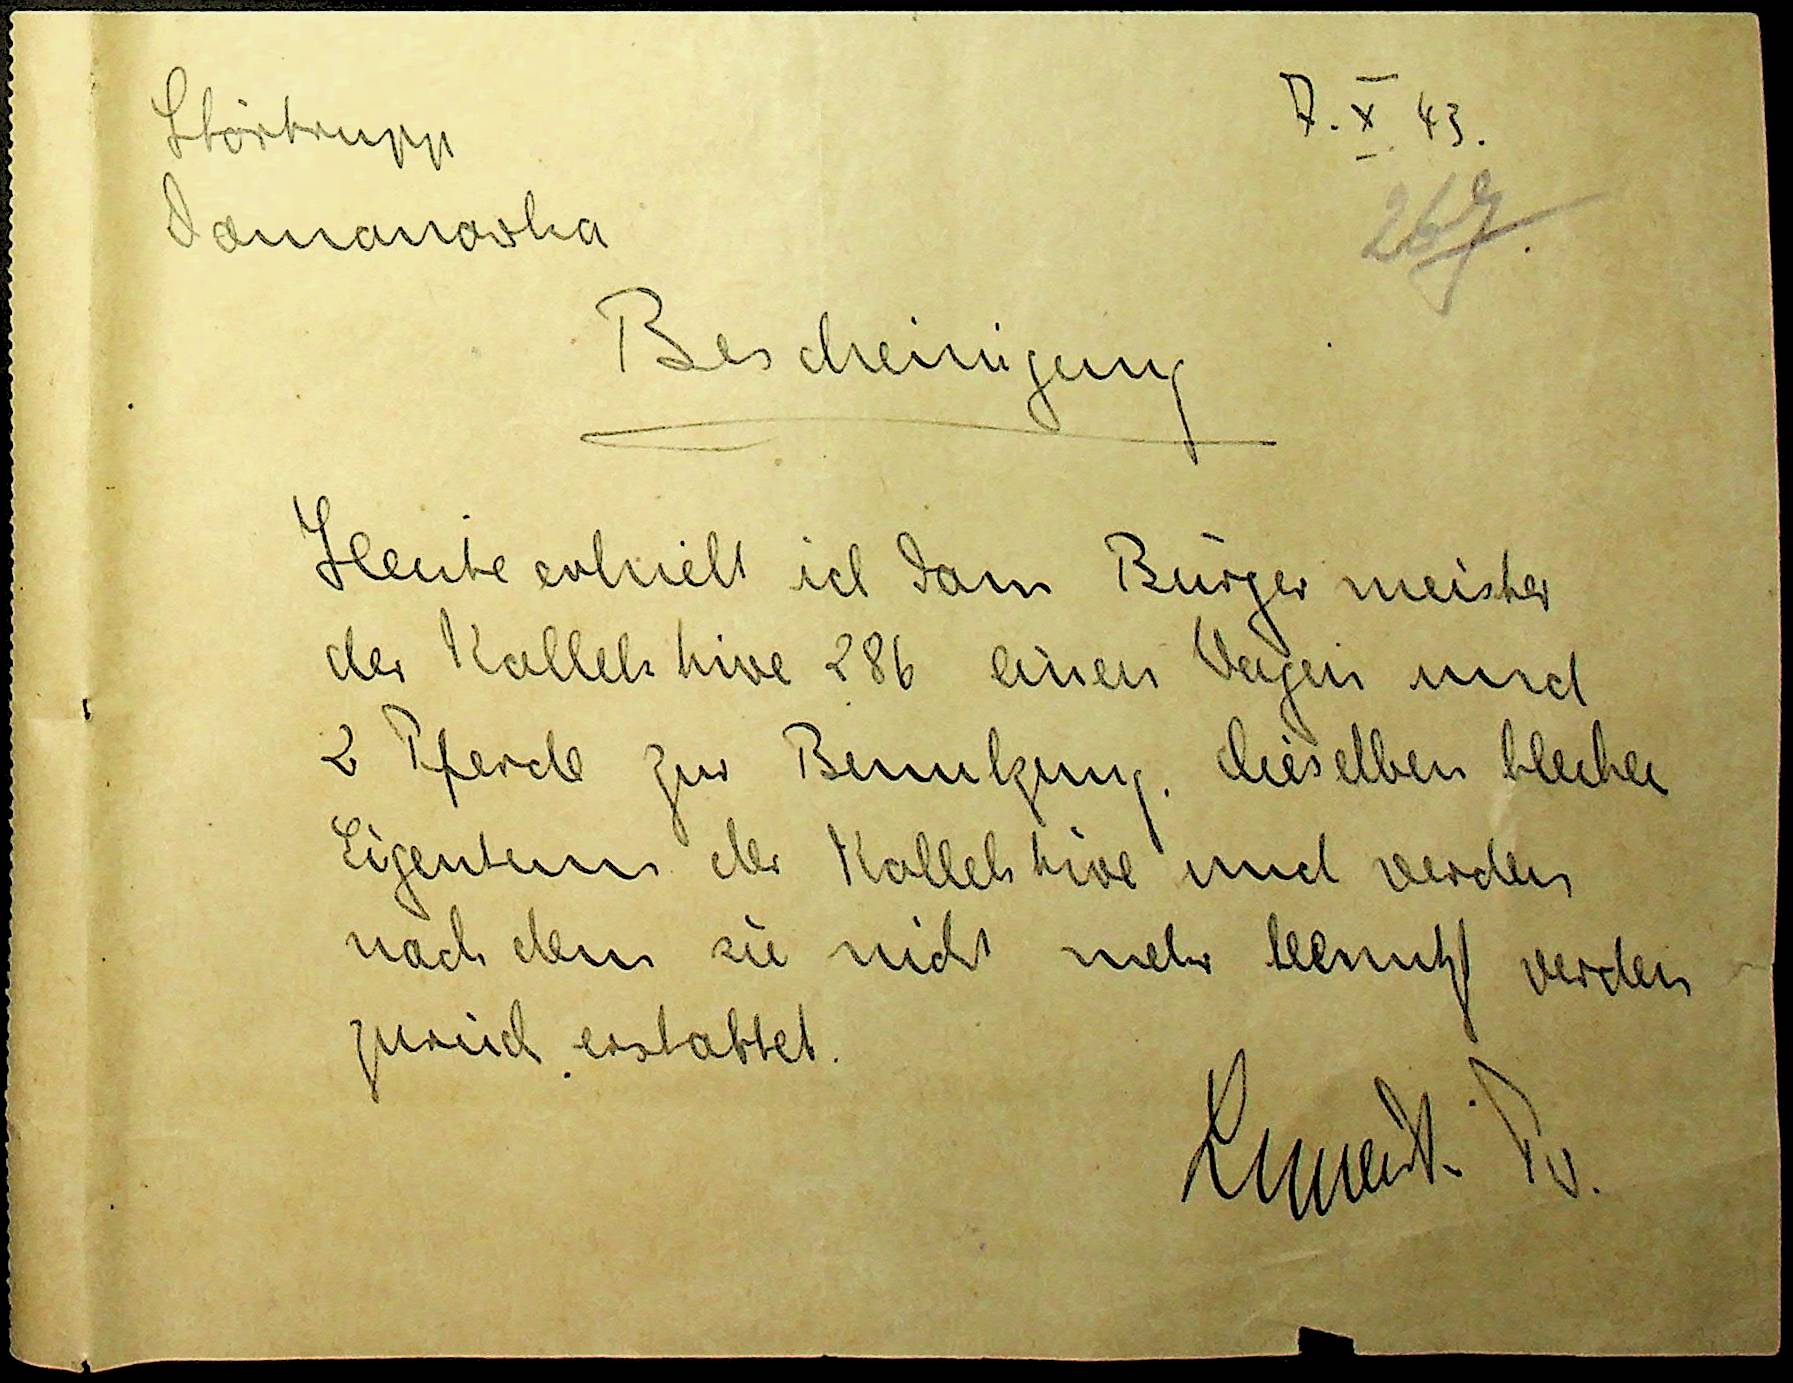 Störtrupp
Domanowka
7. X. 43.
267
Bescheinigung
Heute erhielt ich vom Bürgermeister
der Kollektive 286 einen Wagen und
2 Pferde zur Benutzung. Dieselben bleiben
Eigentum der Kollektive und werden
nach dem sie nicht mehr benutzt werden
zurück erstattet.